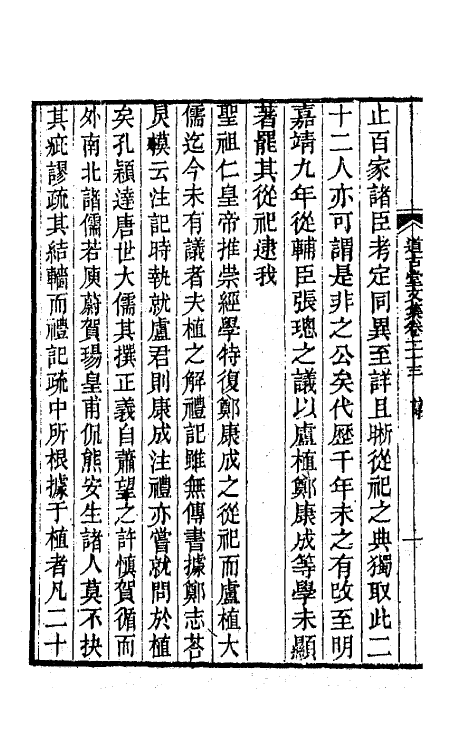 道古堂文集卷二十三
止百家諸臣考定同異至詳且晰從祀之典獨取此二
十二人亦可謂是非之公矣代歷千年未之有改至明
嘉靖九年從輔臣張璁之議以盧植鄭康成等學未顯
著罷其從祀逮我
聖祖仁皇帝推崇經學特復鄭康成之從祀而盧植大
儒迄今未有議者夫植之解禮記雖無傳書據鄭志荅
炅模云注記時執就盧君則康成注禮亦嘗就問於植
矣孔穎達唐世大儒其撰正義自蕭望之許慎賀循而
外南北諸儒若庾蔚賀瑒皇甫侃熊安生諸人莫不抉
其疵謬疏其結轖而禮記疏中所根據于植者凡二十